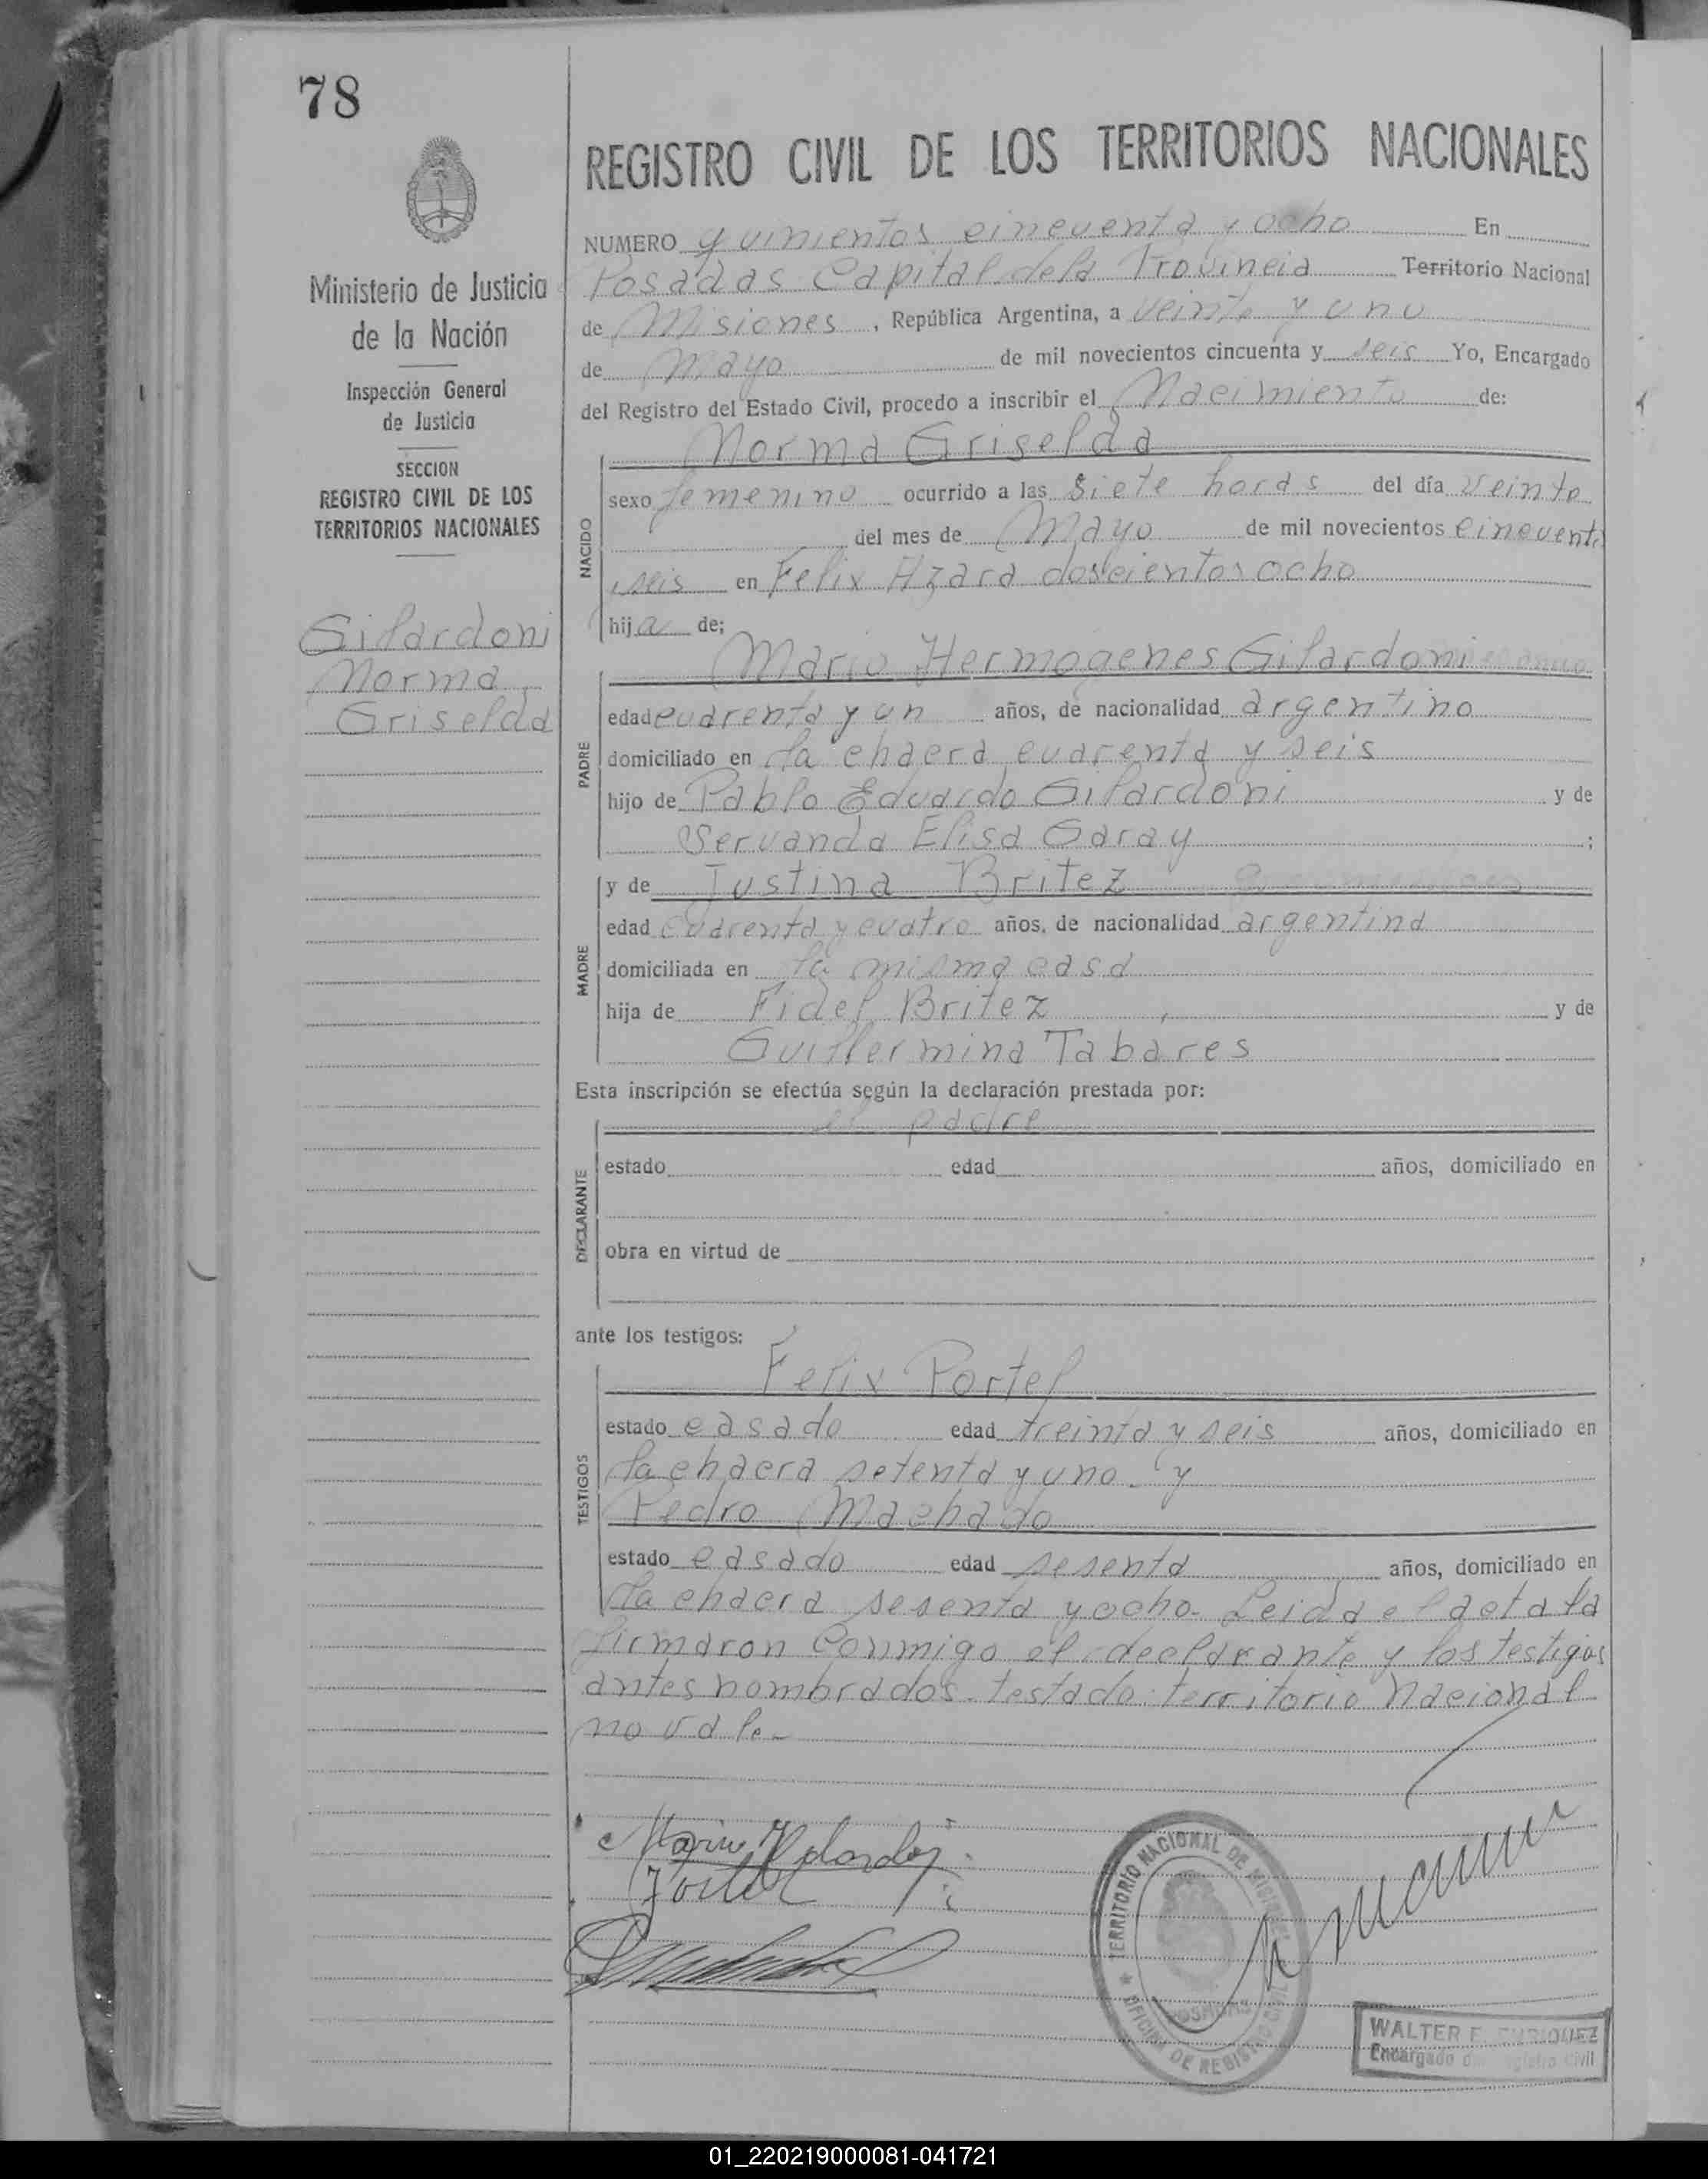 78
Ministerio de Justicia
de la Nación
Inspección General
de Justicia
SECCION
REGISTRO CIVIL DE LOS
TERRITORIOS NACIONALES
Gilardoni
Norma
Griselda
REGISTRO CIVIL DE LOS TERRITORIOS NACIONALES
NUMERO quinientos cincuenta y ocho En
Posadas Capital de la Provincia Territorio Nacional
de Misiones, República Argentina, a veinte y uno
de Mayo de mil novecientos cincuenta y seis Yo, Encargado
del Registro del Estado Civil, procedo a inscribir el Nacimiento de:
Norma Griselda
NACIDO
sexo femenino ocurrido a las siete horas del día veinte
del mes de Mayo de mil novecientos cincuenta
seis en Felix Azara doscientos ocho
hija de;
Mario Hermogenes Gilardoni
PADRE
edad cuarenta y un años, de nacionalidad argentino
domiciliado en la chacra cuarenta y seis
hijo de Pablo Eduardo Gilardoni y de
Servanda Elisa Garay ;
MADRE
y de Justina Britez
edad cuarenta y cuatro años, de nacionalidad argentina
domiciliada en la misma casa
hija de Fidel Britez y de
Guillermina Tabares
Esta inscripción se efectúa según la declaración prestada por:
el padre
DECLARANTE
estado edad años, domiciliado en
obra en virtud de
ante los testigos:
Felix Portel
TESTIGOS
estado casado edad treinta y seis años, domiciliado en
la chacra setenta y uno - y
Pedro Machado
estado casado edad sesenta años, domiciliado en
la chacra sesenta y ocho- Leida el acta la
firmaron conmigo el declarante y los testigos
antes nombrados. testado: territorio nacional
no vale-
TERRITORIO NACIONAL DE MISIONES
POSADAS
OFICINA DE REGISTRO CIVIL
WALTER E. ENRIQUEZ
Encargado del Registro Civil
01_220219000081-041721